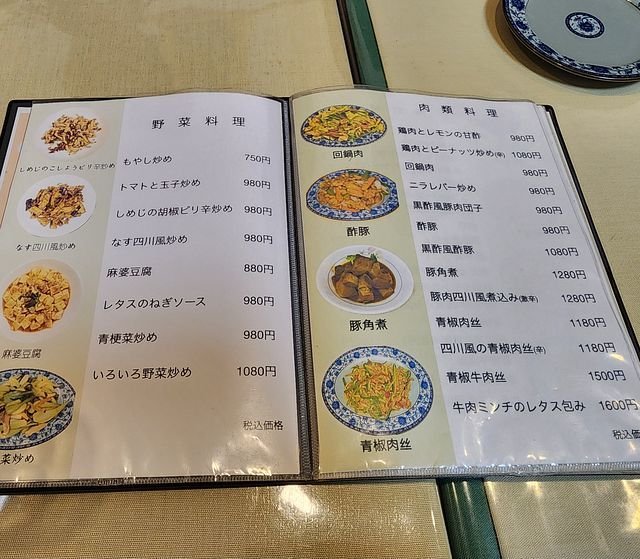 野菜料理
もやし炒め 750円
トマトと玉子炒め 980円
しめじの胡椒ピリ辛炒め 980円
なす四川風炒め 980円
麻婆豆腐 880円
レタスのねぎソース 980円
青梗菜炒め 980円
いろいろ野菜炒め 1080円
税込価格
しめじのこしょうピリ辛炒め
なす四川風炒め
麻婆豆腐
菜炒め
肉類料理
鶏肉とレモンの甘酢 980円
鶏肉とピーナッツ炒め(辛) 1080円
回鍋肉 980円
ニラレバー炒め 980円
黒酢風豚肉団子 980円
酢豚 980円
黒酢風酢豚 1080円
豚角煮 1280円
豚肉四川風煮込み(激辛) 1280円
青椒肉丝 1180円
四川風の青椒肉丝(辛) 1180円
青椒牛肉丝 1500円
牛肉ミンチのレタス包み 1600円
税込価
回鍋肉
酢豚
豚角煮
青椒肉丝